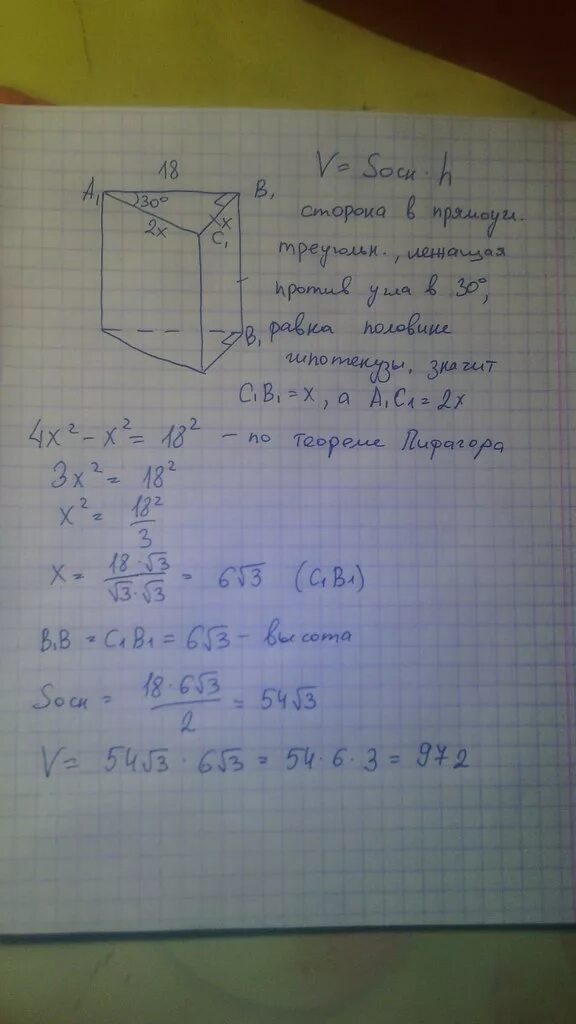 18
A₁ 30° B₁
2x x
C₁
B₁
V = Sосн · h
сторона в прямоуг.
треугольн., лежащая
против угла в 30°,
равна половине
гипотенузы, значит
C₁B₁ = x, а A₁C₁ = 2x
4x² - x² = 18² - по теореме Пифагора
3x² = 18²
x² = 18²/3
x = 18·√3/√3·√3 = 6√3 (C₁B₁)
B₁B = C₁B₁ = 6√3 - высота
Sосн = 18·6√3/2 = 54√3
V = 54√3 · 6√3 = 54·6·3 = 972